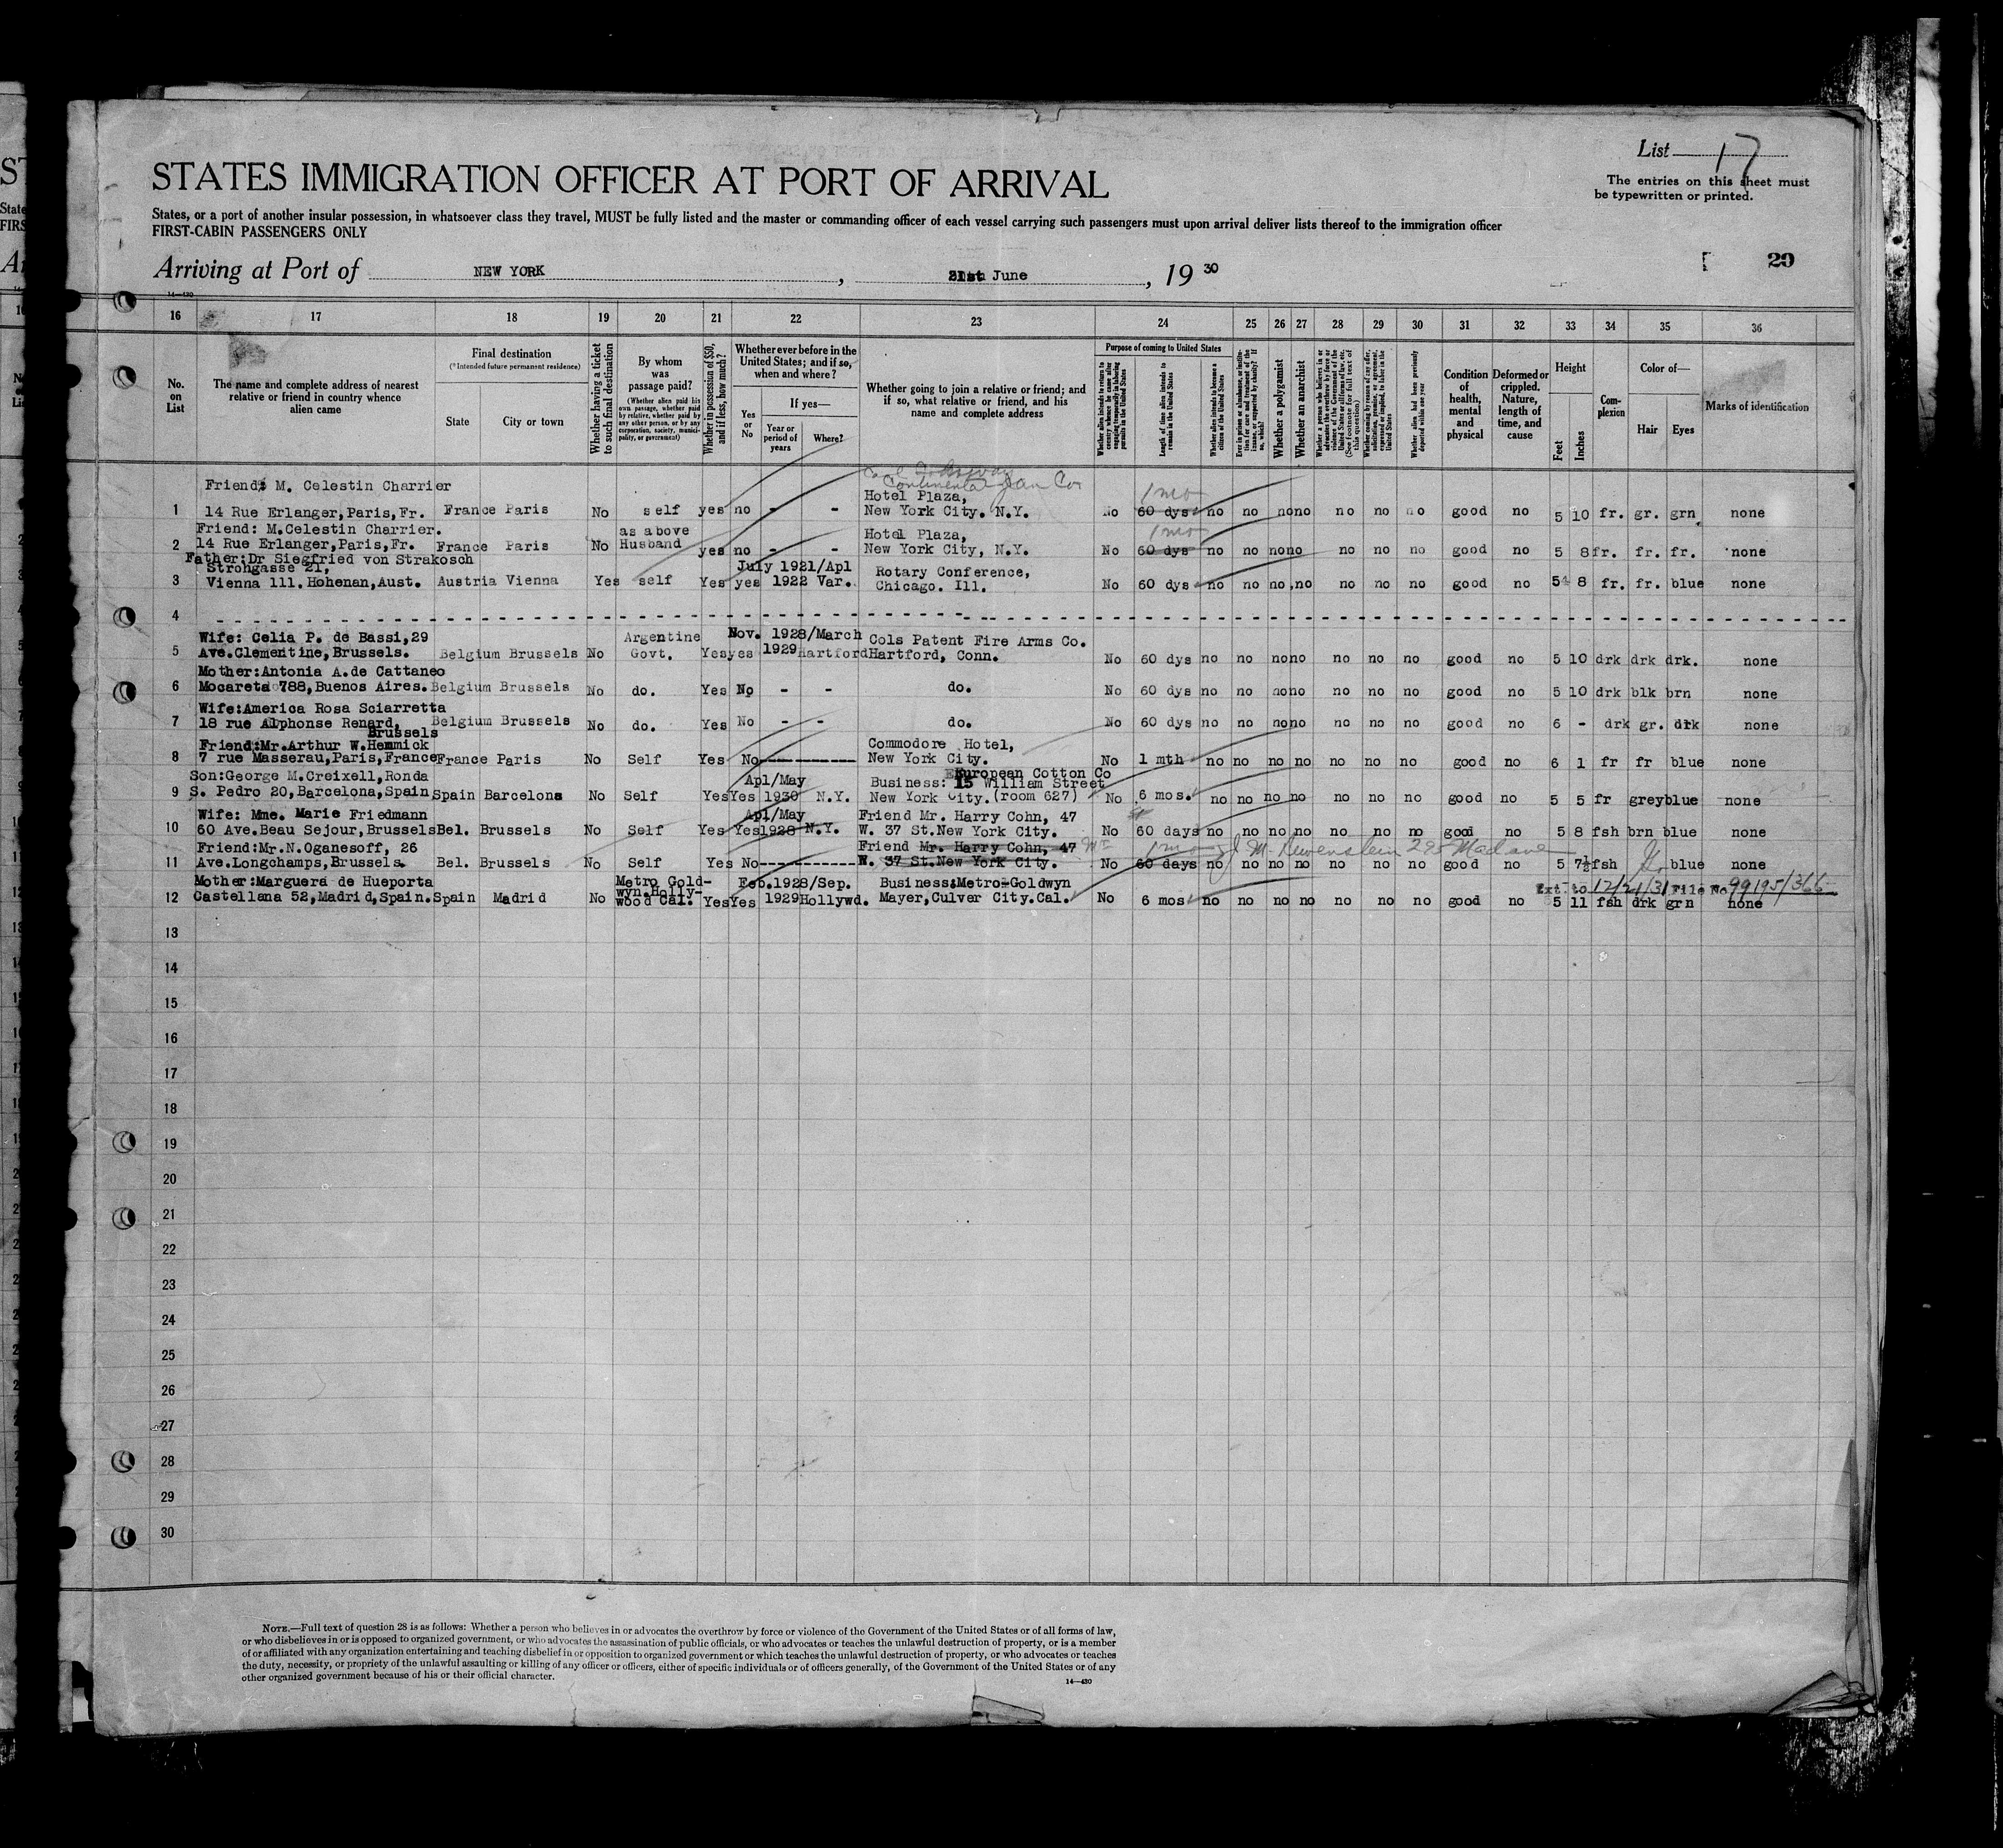 List 17
The entries on this sheet must
be typewritten or printed.
STATES IMMIGRATION OFFICER AT PORT OF ARRIVAL
States, or a port of another insular possession, in whatsoever class they travel, MUST be fully listed and the master or commanding officer of each vessel carrying such passengers must upon arrival deliver lists thereof to the immigration officer
FIRST-CABIN PASSENGERS ONLY
Arriving at Port of NEW YORK, 21st June, 19 30
29
14—430
16 17 18 19 20 21 22 23 24 25 26 27 28 29 30 31 32 33 34 35 36
No. on List
The name and complete address of nearest relative or friend in country whence alien came
Final destination
(*Intended future permanent residence)
State
City or town
Whether having a ticket to such final destination
By whom was passage paid?
(Whether alien paid his own passage, whether paid by relative, whether paid by any other person, or by any corporation, society, municipality, or government)
Whether in possession of $50, and if less, how much?
Whether ever before in the United States; and if so, when and where?
Yes or No
If yes—
Year or period of years
Where?
Whether going to join a relative or friend; and if so, what relative or friend, and his name and complete address
Purpose of coming to United States
Whether alien intends to return to country whence he came after engaging temporarily in laboring pursuits in the United States
Length of time alien intends to remain in the United States
Whether alien intends to become a citizen of the United States
Ever in prison or almshouse, or institution for care and treatment of the insane, or supported by charity? If so, which?
Whether a polygamist
Whether an anarchist
Whether a person who believes in or advocates the overthrow by force or violence of the Government of the United States or all forms of law, etc. (See footnote for full text of this question)
Whether coming by reason of any offer, solicitation, promise, or agreement, expressed or implied, to labor in the United States
Whether alien had been previously deported within one year
Condition of health, mental and physical
Deformed or crippled. Nature, length of time, and cause
Height
Feet
Inches
Complexion
Color of—
Hair
Eyes
Marks of identification
Continental Can Co
Friend: M. Celestin Charrier Hotel Plaza, 1 mo
1 14 Rue Erlanger,Paris,Fr. France Paris No self yes no - - New York City. N.Y. No 60 dys no no no no no no no good no 5 10 fr. gr. grn none
Friend: M.Celestin Charrier. as above Hotel Plaza, 1 mo
2 14 Rue Erlanger,Paris,Fr. France Paris No Husband yes no - - New York City, N.Y. No 60 dys no no no no no no no good no 5 8 fr. fr. fr. none
Father:Dr Siegfried von Strakosch
Strohgasse 21, July 1921/Apl Rotary Conference,
3 Vienna 111. Hohenan,Aust. Austria Vienna Yes self Yes yes 1922 Var. Chicago. Ill. No 60 dys no no no no no no no good no 5 8 fr. fr. blue none
4
Wife: Celia P. de Bassi,29 Argentine Nov. 1928/March Cols Patent Fire Arms Co.
5 Ave.Clementine,Brussels. Belgium Brussels No Govt. Yes yes 1929 Hartford Hartford, Conn. No 60 dys no no no no no no no good no 5 10 drk drk drk. none
Mother:Antonia A.de Cattaneo
6 Mocareta 788,Buenos Aires. Belgium Brussels No do. Yes No - - do. No 60 dys no no no no no no no good no 5 10 drk blk brn none
Wife:America Rosa Sciarretta
7 18 rue Alphonse Renard, Belgium Brussels No do. Yes No - - do. No 60 dys no no no no no no no good no 6 - drk gr. drk none
Brussels
Friend:Mr.Arthur W.Hemmick Commodore Hotel,
8 7 rue Masserau,Paris,France France Paris No Self Yes No New York City. No 1 mth no no no no no no no good no 6 1 fr fr blue none
Son:George M.Creixell,Ronda Apl/May Business: European Cotton Co 15 William Street
9 S. Pedro 20,Barcelona,Spain Spain Barcelona No Self Yes Yes 1930 N.Y. New York City.(room 627) No 6 mos. no no no no no no no good no 5 5 fr grey blue none
Wife: Mme. Marie Friedmann Apl/May Friend Mr. Harry Cohn, 47
10 60 Ave.Beau Sejour,Brussels Bel. Brussels No Self Yes Yes 1928 N.Y. W. 37 St.New York City. No 60 days no no no no no no no good no 5 8 fsh brn blue none
Friend:Mr.N.Oganesoff, 26 Friend Mr. Harry Cohn, 47 1 mo
11 Ave.Longchamps,Brussels. Bel. Brussels No Self Yes No W. 37 St.New York City. No 60 days no no no no no no no good no 5 7½ fsh blue none
Mother:Marguera de Hueporta Metro Gold- Feb.1928/Sep. Business:Metro-Goldwyn Ext to 12/21/31 File No 99195/366
12 Castellana 52,Madrid,Spain. Spain Madrid No wyn.Holly-wood Cal. Yes Yes 1929 Hollywd. Mayer,Culver City.Cal. No 6 mos no no no no no no no good no 5 11 fsh drk grn none
13
14
15
16
17
18
19
20
21
22
23
24
25
26
27
28
29
30
NOTE.—Full text of question 28 is as follows: Whether a person who believes in or advocates the overthrow by force or violence of the Government of the United States or of all forms of law,
or who disbelieves in or is opposed to organized government, or who advocates the assassination of public officials, or who advocates or teaches the unlawful destruction of property, or is a member
of or affiliated with any organization entertaining and teaching disbelief in or opposition to organized government or which teaches the unlawful destruction of property, or who advocates or teaches
the duty, necessity, or propriety of the unlawful assaulting or killing of any officer or officers, either of specific individuals or of officers generally, of the Government of the United States or of any
other organized government because of his or their official character.
14—430